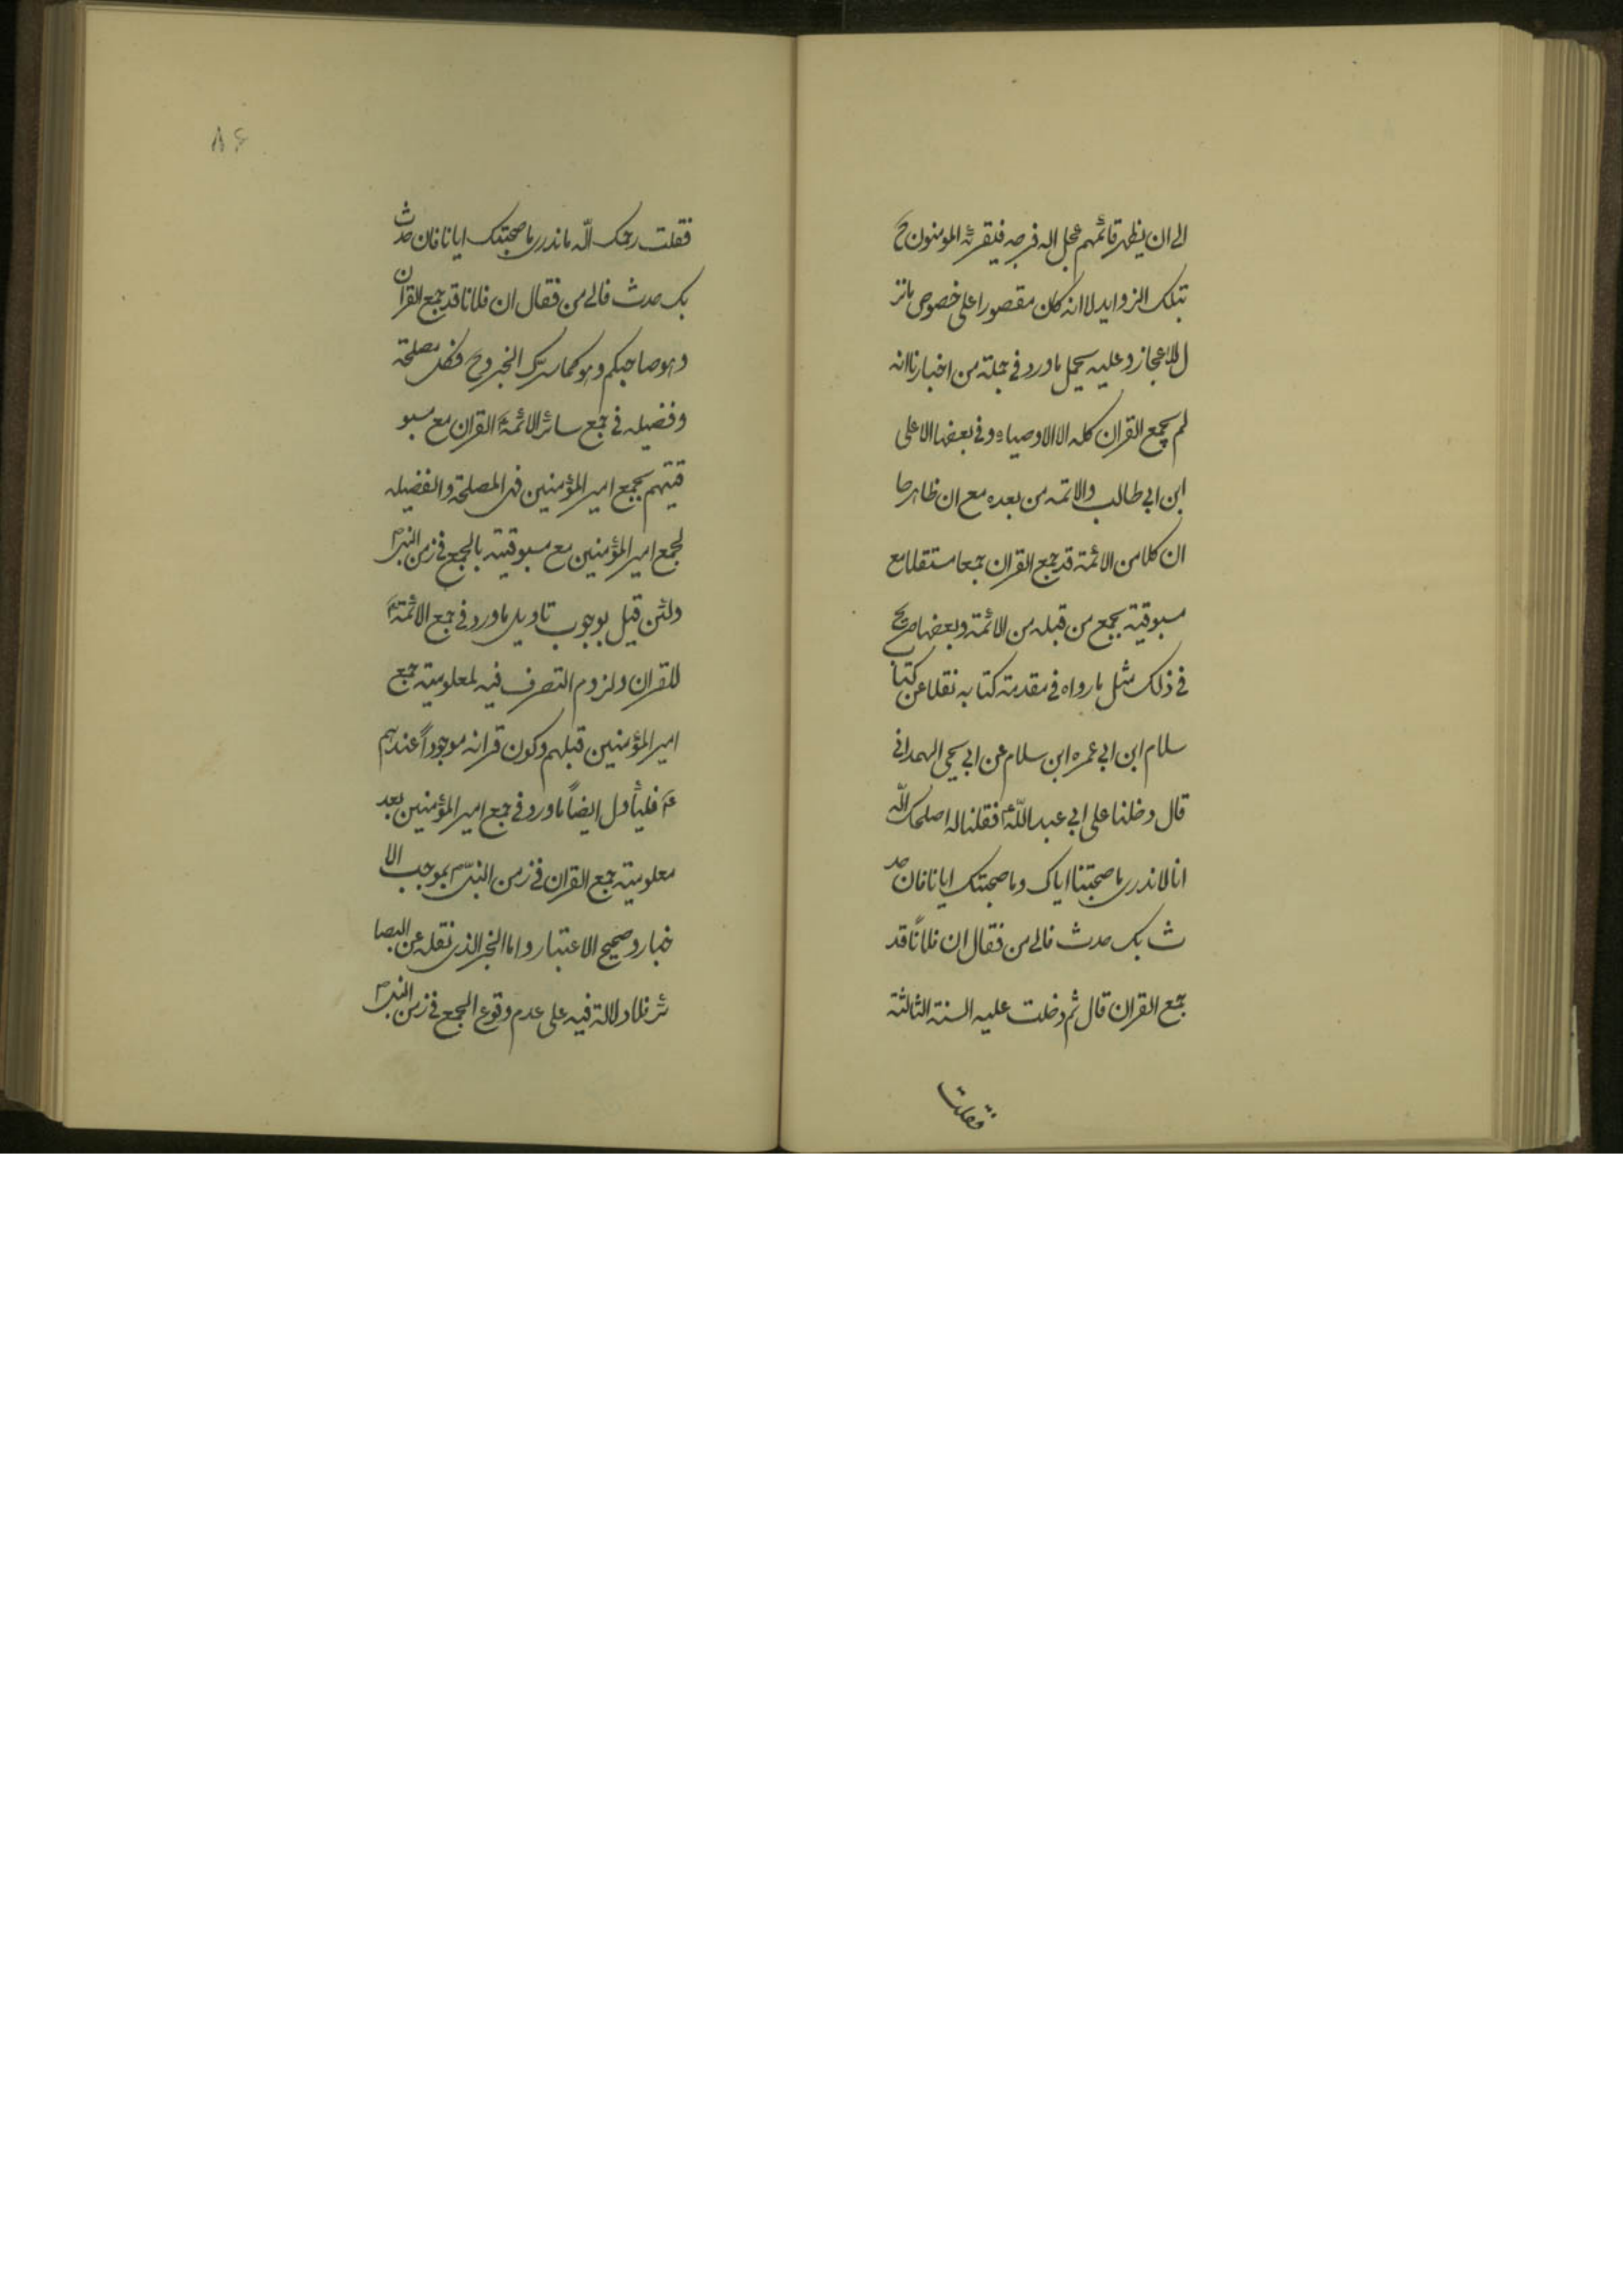 الى ان يظهر قائمهم عجل اله فرجه فيقرئه المؤمنون ح
بتلك الزوايد لا انه كان مقصورا على خصوص ما نز
ل للاعجاز وعليه يحمل ما ورد فى جملة من اخبارنا انه
لم يجمع القران كله الا الاوصياء وفى بعضها الا على
ابن ابى طالب والائمه من بعده مع ان ظاهرها
ان كلا من الائمة قد جمع القران جمعا مستقلا مع
مسبوقية بجمع من قبله من الائمة وبعضها صريح
فى ذلك مثل ما رواه فى مقدمة كتابه نقلا عن كتا
سلام ابن ابى عمره ابن سلام عن ابى يحى الهمدانى
قال دخلنا على ابى عبد اللّه ع فقلنا له اصلحك اللّه
انا لا ندرى ما صحبتنا اياك وما صحبتك ايانا فان حد
ث بك حدث فالى من فقال ان فلاناً قد
جمع القران قال ثم دخلت عليه السنة الثالثة
فقلت
٨۶
فقلت رحمك اللّه ما ندرى ما صحبتك ايانا فان حدث
بك حدث فالى من فقال ان فلانا قد جمع القران
وهو صاحبكم وهو كما الخبر وح فكل مصلحة
وفضيله فى جمع سائر الائمة ع القران مع مسبو
قيتهم بجمع امير المؤمنين فهى المصلحة والفضيله
لجمع امير المؤمنين مع مسبوقيته بالجمع فى زمن النبى ص
ولئن قيل بوجوب تاويل ما ورد فى جمع الائمة ع
للقران ولزوم التصرف فيه لمعلومية جمع
امير المؤمنين قبلهم وكون قرانه موجوداً عندهم
ع فليأول ايضاً ما ورد فى جمع امير المؤمنين بعد
معلومية جمع القران فى زمن النبىّ ص بموجب الا
خبار وصحيح الاعتبار واما الخبر الذى نقله عن البصا
ئر فلا دلالة فيه على عدم وقوع الجمع فى زمن النبى ص